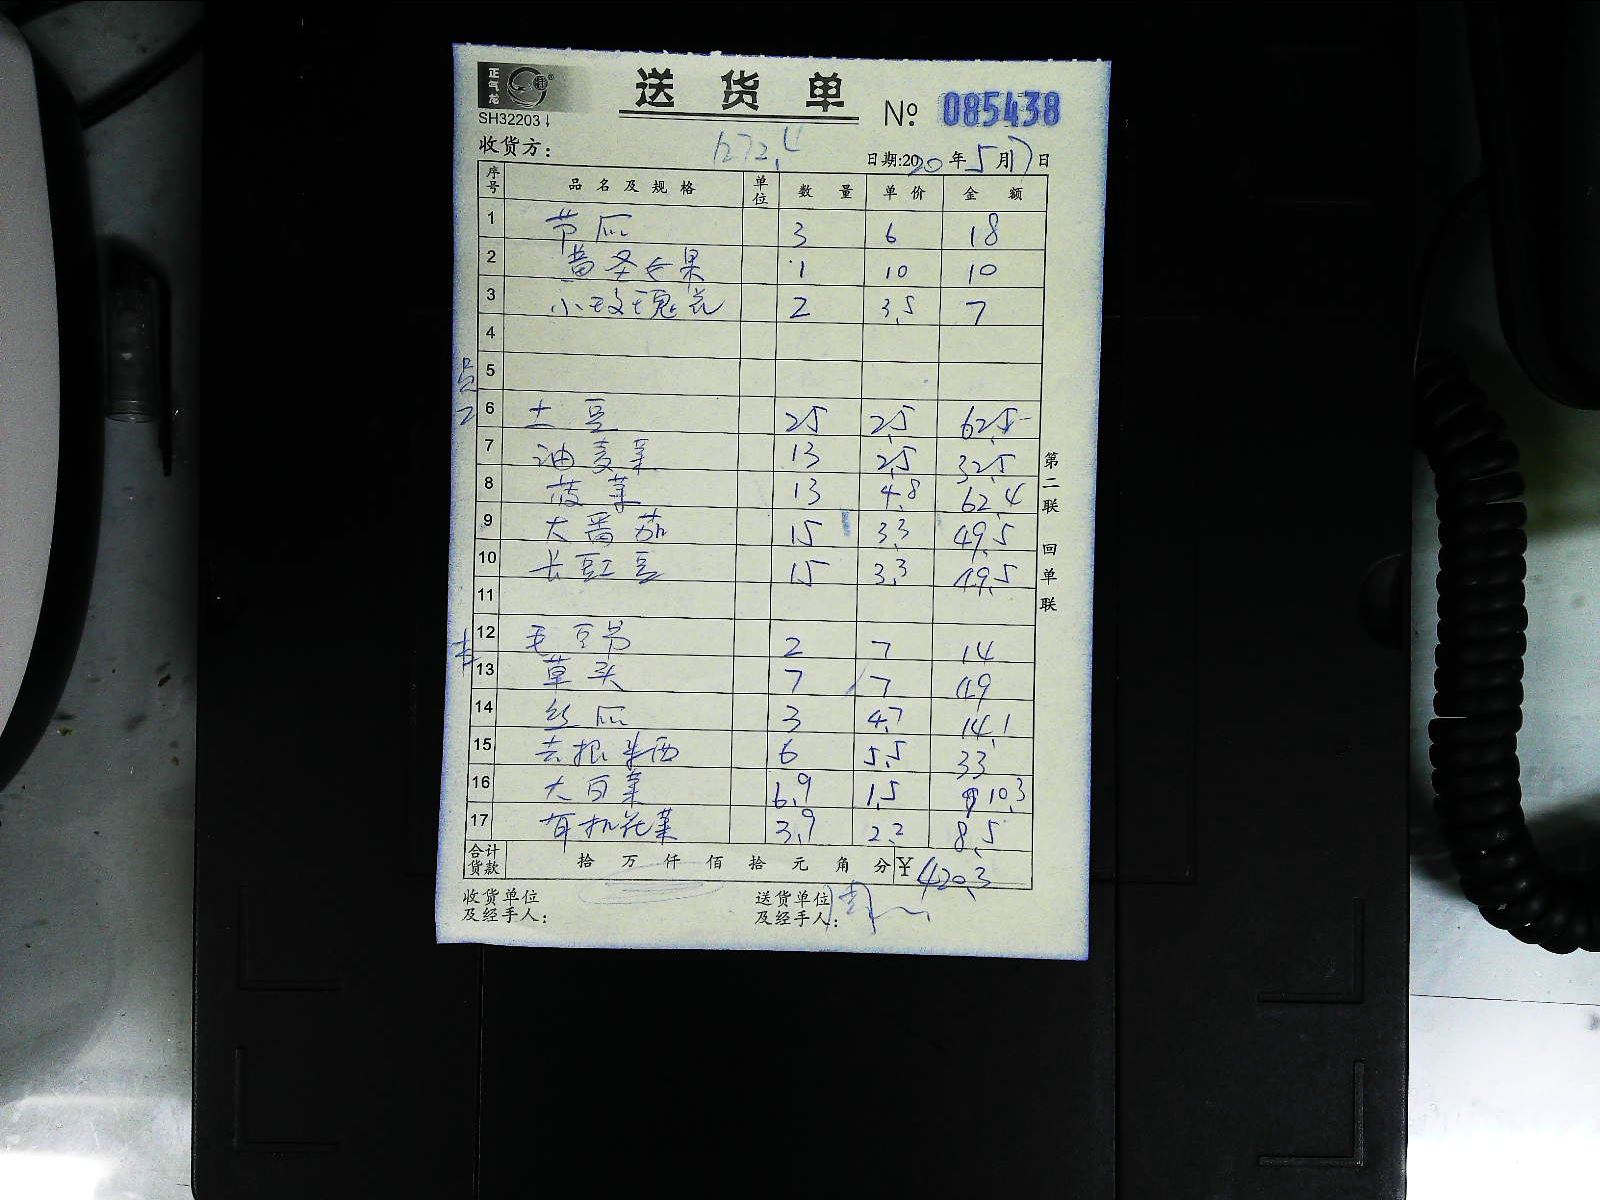 正气龙
SH32203
送货单
№ 085438
收货方：
1272.4
日期:2020年5月17日
序号 品名及规格 单位 数量 单价 金额
1 节瓜 3 6 18
2 黄圣女果 1 10 10
3 小玫瑰花 2 3.5 7
4
5
6 土豆 25 2.5 62.5
7 油麦菜 13 2.5 32.5
8 菠菜 13 4.8 62.4
9 大番茄 15 3.3 49.5
10 长豇豆 15 3.3 49.5
11
12 毛豆节 2 7 14
13 草头 7 7 49
14 丝瓜 3 4.7 14.1
15 去根米西 6 5.5 33
16 大白菜 6.9 1.5 10.3
17 有机花菜 3.9 2.2 8.5
合计货款 拾 万 仟 佰 拾 元 角 分 ¥420.3
收货单位及经手人：
送货单位及经手人：
第二联 回单联